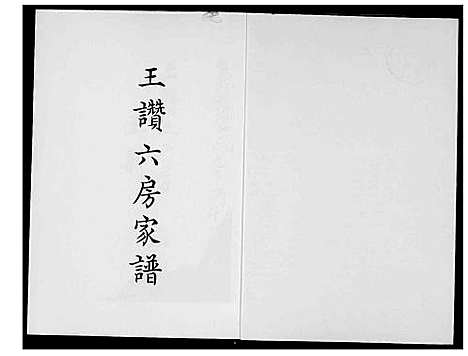 王讚六房家譜